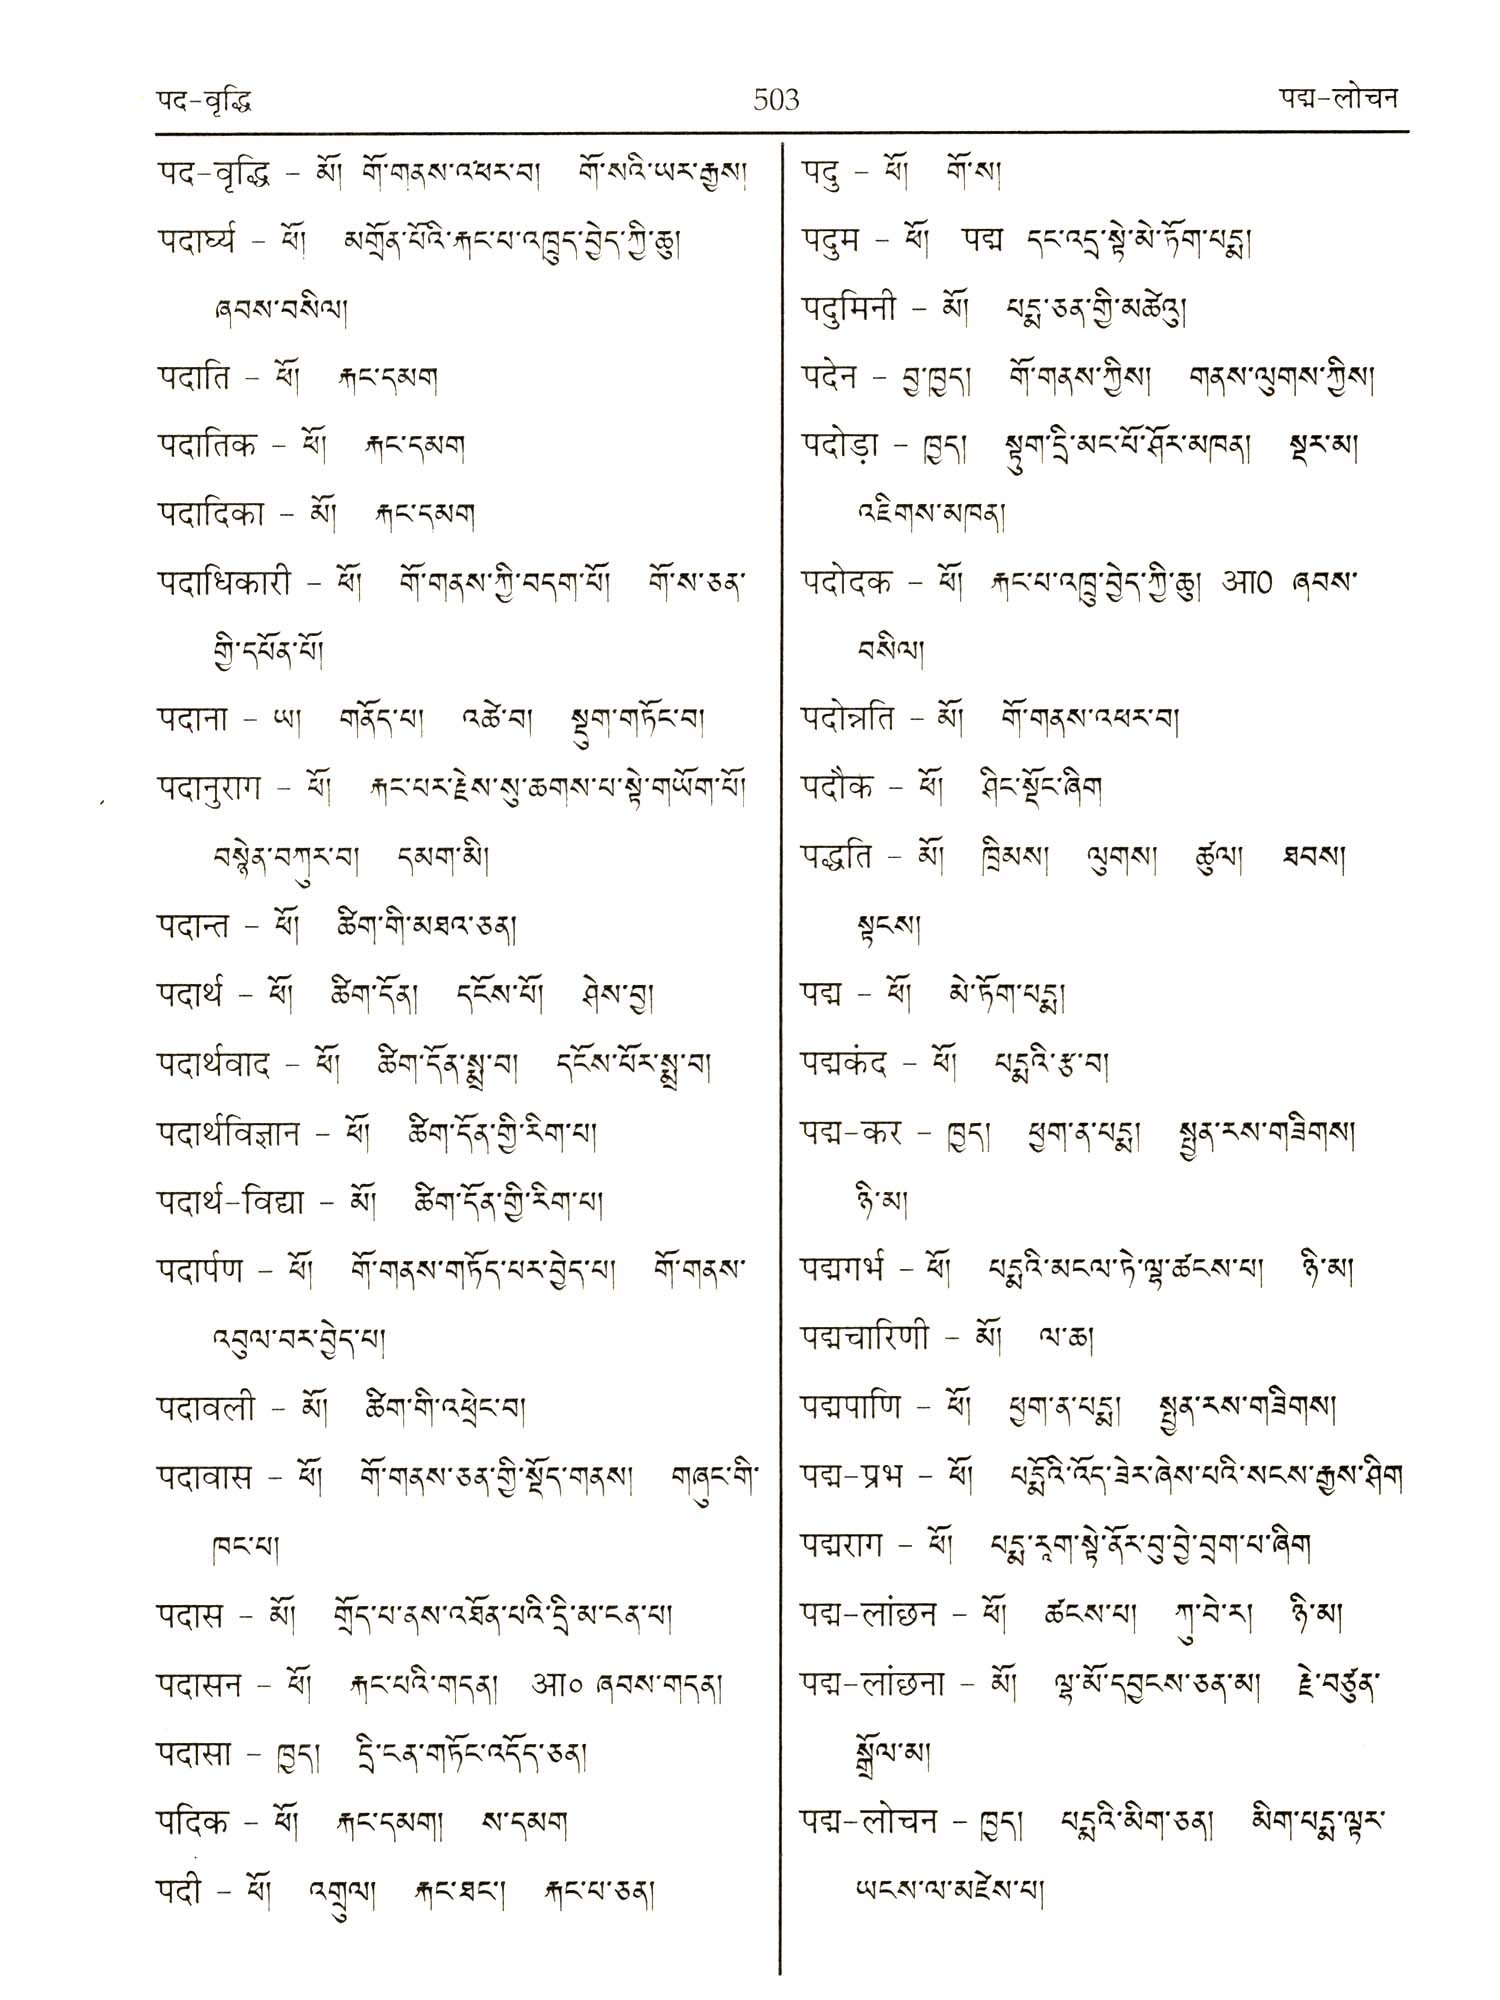 पद-वृद्धि 503 पद्म-लोचन
पद-वृद्धि - མོ། གོ་གནས་འཕར་བ། གོ་སའི་ཡར་རྒྱས།
पदार्घ्य - ཕོ། མགྲོན་པོའི་རྐང་པ་འཁྲུད་བྱེད་ཀྱི་ཆུ།
ཞབས་བསིལ།
पदाति - ཕོ། རྐང་དམག
पदातिक - ཕོ། རྐང་དམག
पदादिका - མོ། རྐང་དམག
पदाधिकारी - ཕོ། གོ་གནས་ཀྱི་བདག་པོ། གོ་ས་ཅན་
གྱི་དཔོན་པོ།
पदाना - ཡ། གནོད་པ། འཚེ་བ། སྡུག་གཏོང་བ།
पदानुराग - ཕོ། རྐང་པར་རྗེས་སུ་ཆགས་པ་སྟེ་གཡོག་པོ།
བསྙེན་བཀུར་བ། དམག་མི།
पदान्त - ཕོ། ཚིག་གི་མཐའ་ཅན།
पदार्थ - ཕོ། ཚིག་དོན། དངོས་པོ། ཤེས་བྱ།
पदार्थवाद - ཕོ། ཚིག་དོན་སྨྲ་བ། དངོས་པོར་སྨྲ་བ།
पदार्थविज्ञान - ཕོ། ཚིག་དོན་གྱི་རིག་པ།
पदार्थ-विद्या - མོ། ཚིག་དོན་གྱི་རིག་པ།
पदार्पण - ཕོ། གོ་གནས་གཏོད་པར་བྱེད་པ། གོ་གནས་
འབུལ་བར་བྱེད་པ།
पदावली - མོ། ཚིག་གི་འཕྲེང་བ།
पदावास - ཕོ། གོ་གནས་ཅན་གྱི་སྡོད་གནས། གཞུང་གི་
ཁང་པ།
पदास - མོ། གྲོད་པ་ནས་འཐོན་པའི་དྲི་མ་ངན་པ།
पदासन - ཕོ། རྐང་པའི་གདན། आ० ཞབས་གདན།
पदासा - ཁྱད། དྲི་ངན་གཏོང་འདོད་ཅན།
पदिक - ཕོ། རྐང་དམག། ས་དམག
पदी - ཕོ། འགྲུལ། རྐང་ཐང་། རྐང་པ་ཅན།
पदु - ཕོ། གོ་ས།
पदुम - ཕོ། पद्म དང་འདྲ་སྟེ་མེ་ཏོག་པདྨ།
पदुमिनी - མོ། པདྨ་ཅན་གྱི་མཚེའུ།
पदेन - བྱ་ཁྱད། གོ་གནས་ཀྱིས། གནས་ལུགས་ཀྱིས།
पदोड़ा - ཁྱད། སྟུག་དྲི་མང་པོ་ཤོར་མཁན། སྡར་མ།
འཇིགས་མཁན།
पदोदक - ཕོ། རྐང་པ་འཁྲུ་བྱེད་ཀྱི་ཆུ། आ0 ཞབས་
བསིལ།
पदोन्नति - མོ། གོ་གནས་འཕར་བ།
पदौक - ཕོ། ཤིང་སྡོང་ཞིག
पद्धति - མོ། ཁྲིམས། ལུགས། ཚུལ། ཐབས།
སྟངས།
पद्म - ཕོ། མེ་ཏོག་པདྨ།
पद्मकंद - ཕོ། པདྨའི་རྩ་བ།
पद्म-कर - ཁྱད། ཕྱག་ན་པདྨ། སྤྱན་རས་གཟིགས།
ཉི་མ།
पद्मगर्भ - ཕོ། པདྨའི་མངལ་ཏེ་ལྷ་ཚངས་པ། ཉི་མ།
पद्मचारिणी - མོ། ལ་ཆ།
पद्मपाणि - ཕོ། ཕྱག་ན་པདྨ། སྤྱན་རས་གཟིགས།
पद्म-प्रभ - ཕོ། པདྨོའི་འོད་ཟེར་ཞེས་པའི་སངས་རྒྱས་ཤིག
पद्मराग - ཕོ། པདྨ་རཱག་སྟེ་ནོར་བུ་བྱེ་བྲག་པ་ཞིག
पद्म-लांछन - ཕོ། ཚངས་པ། ཀུ་བེ་ར། ཉི་མ།
पद्म-लांछना - མོ། ལྷ་མོ་དབྱངས་ཅན་མ། རྗེ་བཙུན་
སྒྲོལ་མ།
पद्म-लोचन - ཁྱད། པདྨའི་མིག་ཅན། མིག་པདྨ་ལྟར་
ཡངས་ལ་མཛེས་པ།